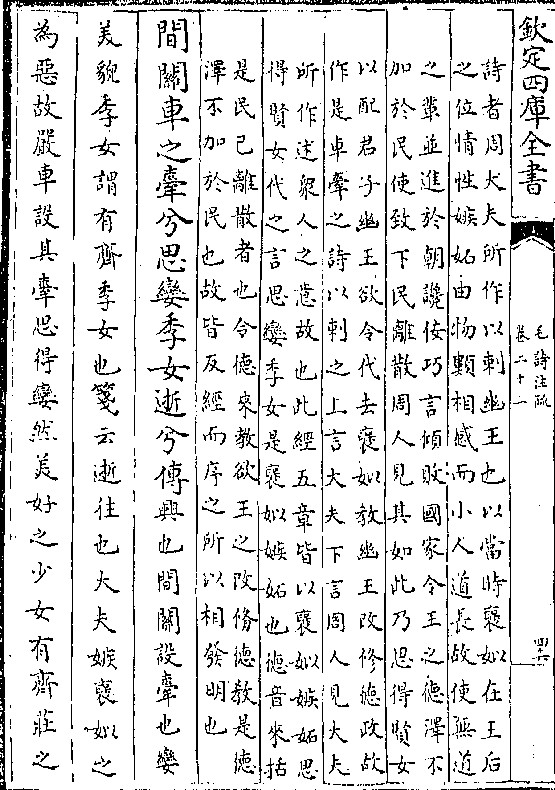 欽定四庫全書
毛詩注疏
卷二十一
四十六
詩者周大夫所作以刺幽王也以當時襃姒在王后
之位情性嫉妬由物類相感而小人道長故使無道
之輩並進於朝讒佞巧言傾敗國家令王之德澤不
加於民使致下民離散周人見其如此乃思得賢女
以配君子幽王欲令代去襃姒教幽王改修德政故
作是車舝之詩以刺之上言大夫下言周人見大夫
所作述衆人之意故也此經五章皆以襃姒嫉妬思
得賢女代之言思孌季女是襃姒嫉妬也德音來括
是民已離散者也令德來教欲王之改脩德教是德
澤不加於民也故皆反經而序之所以相發明也
間關車之舝兮思孌季女逝兮傳興也間關設舝也孌
美貌季女謂有齊季女也箋云逝往也大夫嫉襃姒之
為惡故嚴車設其舝思得孌然美好之少女有齊莊之